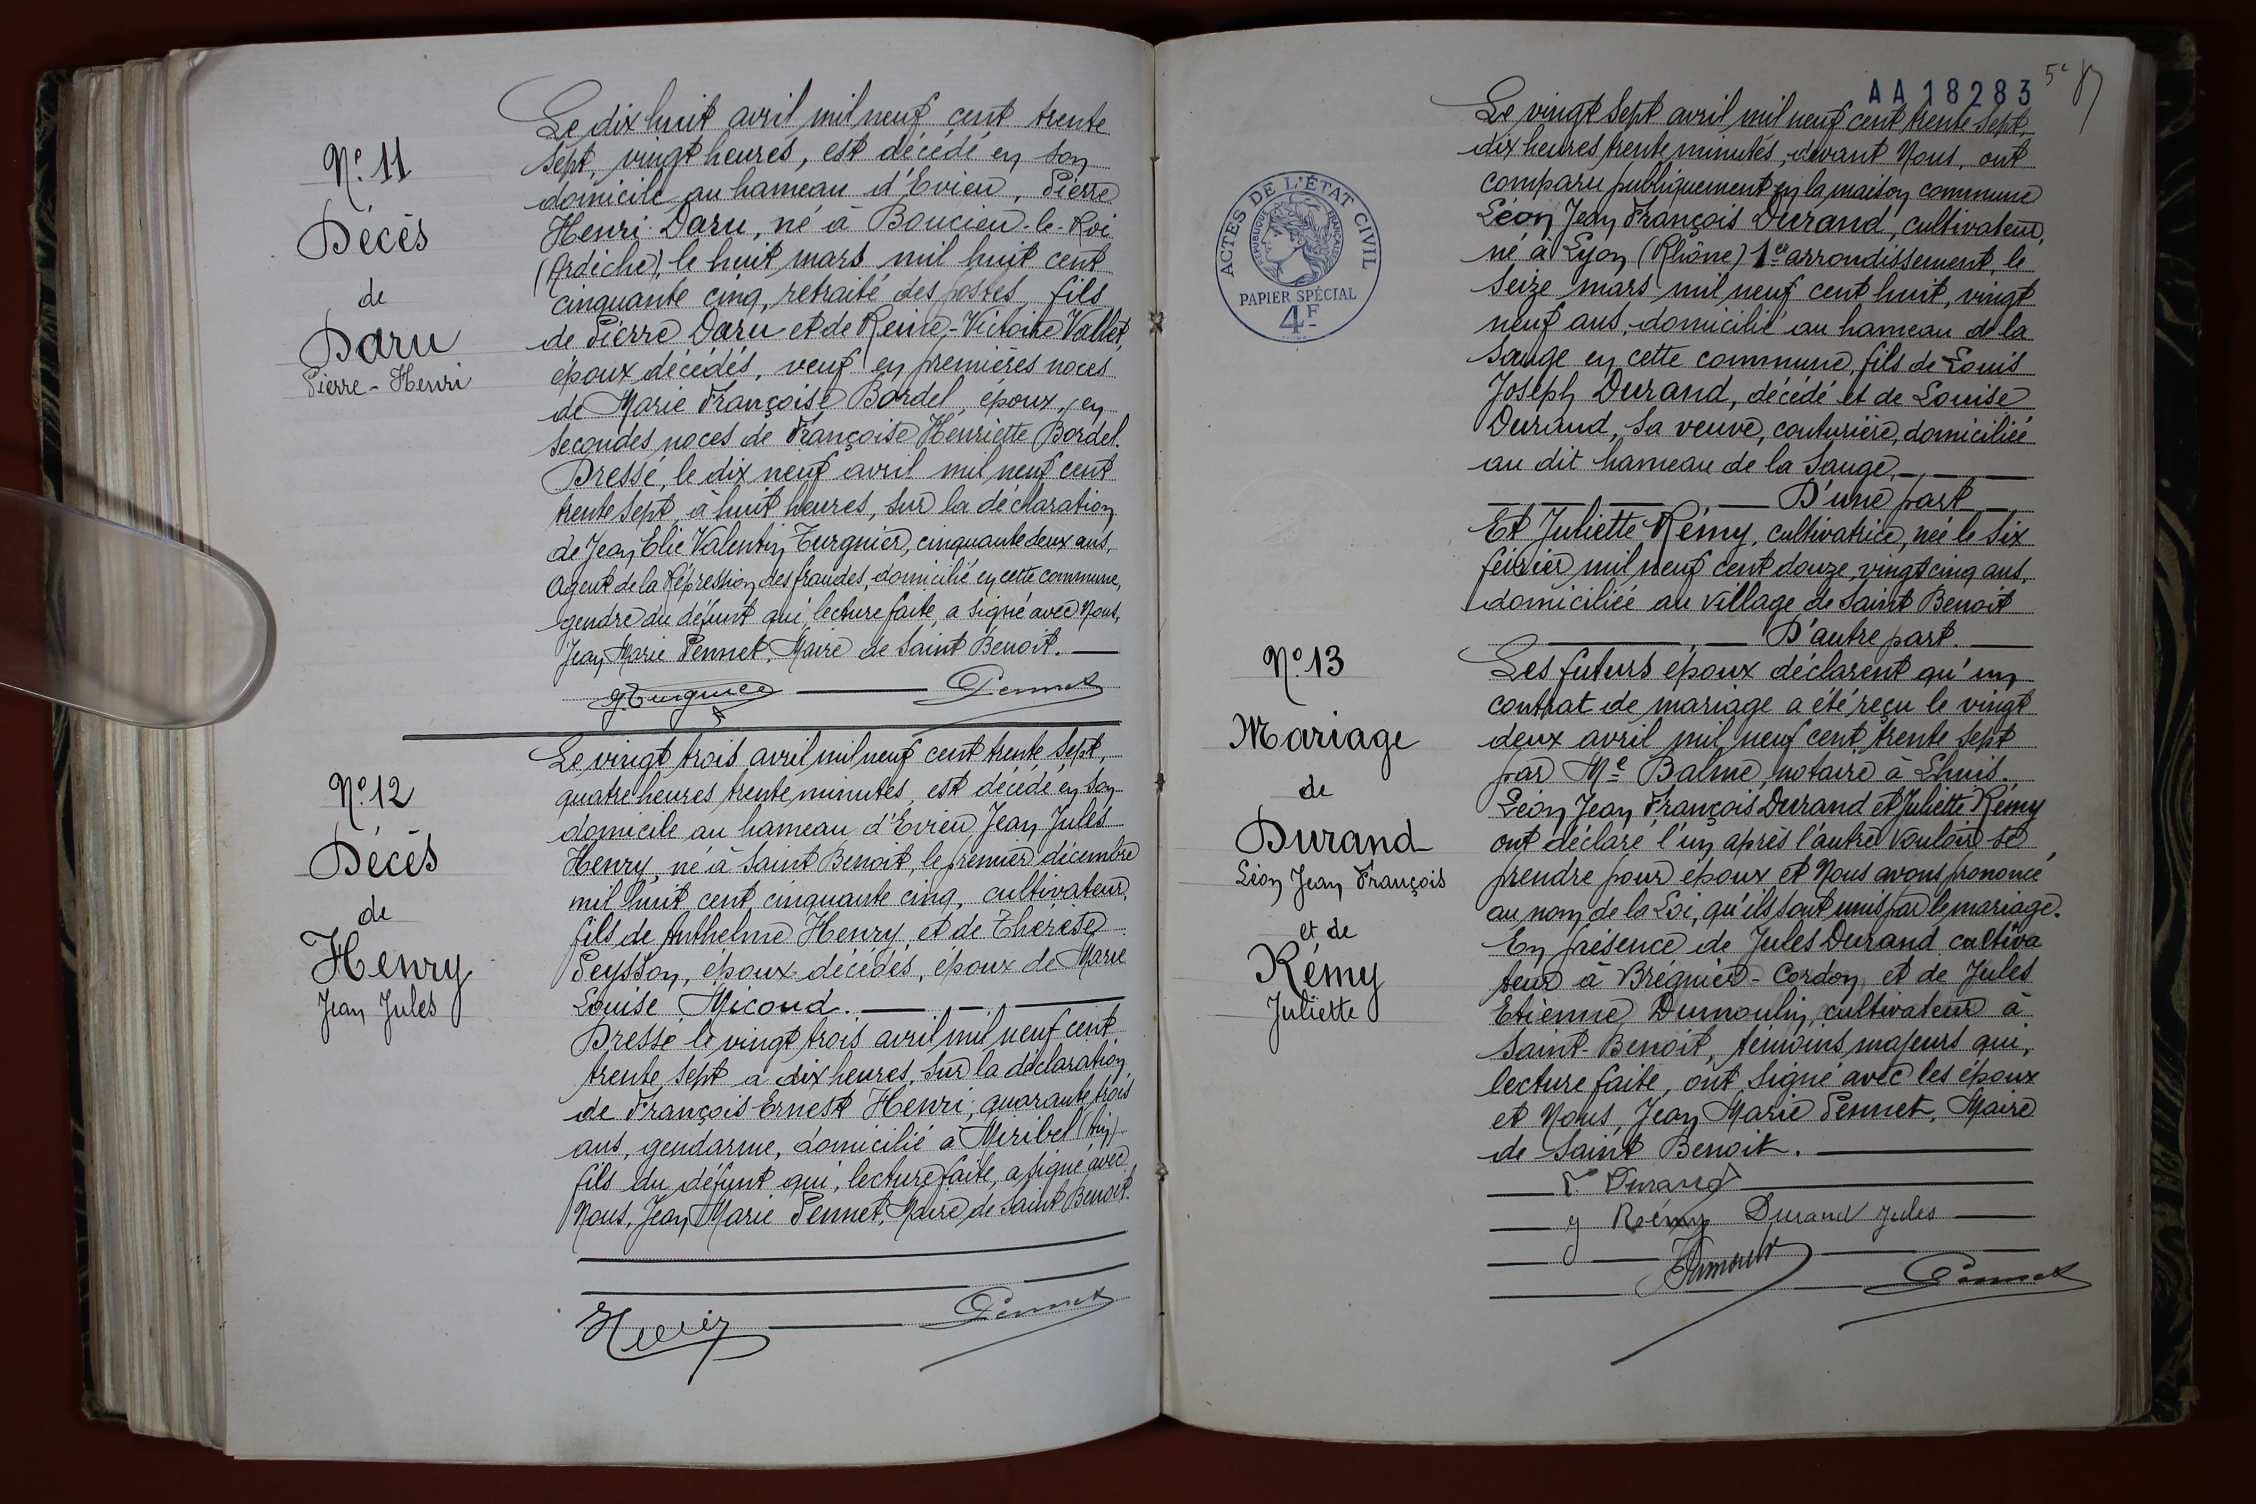 N° 11
Décès
de
Daru
Pierre-Henri
Le dix huit avril mil neuf cent trente
sept, vingt heures, est décédé en son
domicile au hameau d'Evieu, Pierre
Henri Daru, né à Boucieu-le-Roi
(Ardèche), le huit mars mil huit cent
cinquante cinq, retraité des postes, fils
de Pierre Daru et de Reine-Victoire Vallet,
époux décédés, veuf en premières noces
de Marie Françoise Bordel, époux, en
secondes noces de Françoise Henriette Bordel.
Dressé, le dix neuf avril mil neuf cent
trente sept, à huit heures, sur la déclaration
de Jean Elie Valentin Turgnier, cinquante deux ans,
Agent de la Répression des fraudes, domicilié en cette commune,
gendre du défunt qui, lecture faite, a signé avec Nous,
Jean Marie Pennet, Maire de Saint Benoit.
Pennet
N° 12
Décès
de
Henry
Jean Jules
Le vingt trois avril mil neuf cent trente sept,
quatre heures trente minutes, est décédé en son
domicile au hameau d'Evieu Jean Jules
Henry, né à Saint Benoit, le premier décembre
mil huit cent cinquante cinq, cultivateur,
fils de Anthelme Henry, et de Thérèse
Peysson, époux décédés, époux de Marie
Louise Micoud.
Dressé le vingt trois avril mil neuf cent
trente sept à dix heures, sur la déclaration
de François Ernest Henri, quarante trois
ans, gendarme, domicilié à Miribel (Ain)
fils du défunt qui, lecture faite, a signé avec
Nous, Jean Marie Pennet, Maire de Saint Benoit.
Pennet
AA 18283
5e
87
ACTES DE L'ÉTAT CIVIL
RÉPUBLIQUE FRANÇAISE
PAPIER SPÉCIAL
4F
N° 13
Mariage
de
Durand
Léon Jean François
et de
Rémy
Juliette
Le vingt sept avril mil neuf cent trente sept,
dix heures trente minutes, devant Nous, ont
comparu publiquement en la maison commune
Léon Jean François Durand, cultivateur,
né à Lyon (Rhône) 1er arrondissement, le
seize mars mil neuf cent huit, vingt
neuf ans, domicilié au hameau de la
Sauge en cette commune, fils de Louis
Joseph Durand, décédé et de Louise
Durand, sa veuve, couturière, domiciliée
au dit hameau de la Sauge,
D'une part
Et Juliette Rémy, cultivatrice, née le six
février mil neuf cent douze, vingt cinq ans,
domiciliée au village de Saint Benoit
D'autre part.
Les futurs époux déclarent qu'un
contrat de mariage a été reçu le vingt
deux avril mil neuf cent trente sept
par Me Balme, notaire à Lhuis.
Léon Jean François Durand et Juliette Rémy
ont déclaré l'un après l'autre vouloir se
prendre pour époux et Nous avons prononcé
au nom de la Loi, qu'ils sont unis par le mariage.
En présence de Jules Durand cultiva
teur à Brégnier-Cordon, et de Jules
Etienne Dumoulin, cultivateur à
Saint-Benoit, témoins majeurs qui,
lecture faite, ont signé avec les époux
et Nous, Jean Marie Pennet, Maire
de Saint Benoit.
L. Durand
J Rémy Durand Jules
Pennet